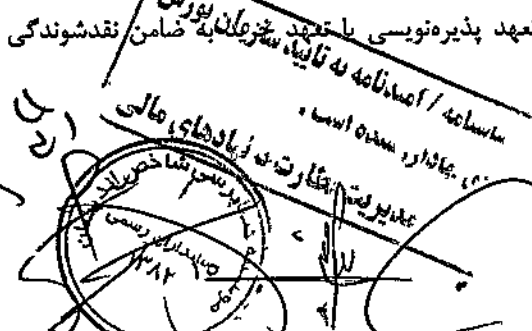 تعهد پذیره‌نویسی یا تعهد خرید به ضامن نقدشوندگی
اساسنامه / امیدنامه به تایید سازمان بورس
و اوراق بهادار رسیده است.
مدیریت نظارت بر نهادهای مالی
موسسه حسابرسی شاخص اندیشان
حسابداران رسمی
۱۳۸۲